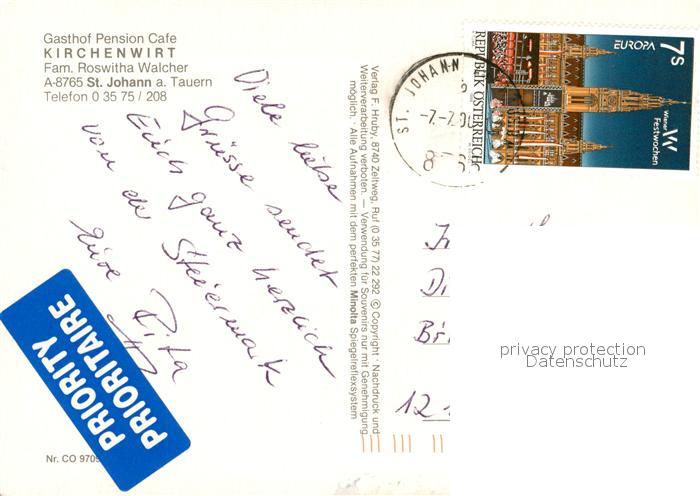 Gasthof Pension Cafe
KIRCHENWIRT
Fam. Roswitha Walcher
A-8765 St. Johann a. Tauern
Telefon 0 35 75 / 208
Viele liebe
Grüsse sendet
Euch ganz herzlich
von der Steiermark
Eure Rita
PRIORITY
PRIORITAIRE
Nr. CO 9705
Verlag F. Hruby, 8740 Zeltweg, Ruf (0 35 77) 22 292 © Copyright · Nachdruck und
Weiterverarbeitung verboten. — Verwendung für Souvenirs nur mit Genehmigung
möglich. · Alle Aufnahmen mit dem perfekten Minolta Spiegelreflexsystem
ST. JOHANN
-7.-7.
REPUBLIK ÖSTERREICH
7S
EUROPA
Wiener
Festwochen
12
privacy protection
Datenschutz